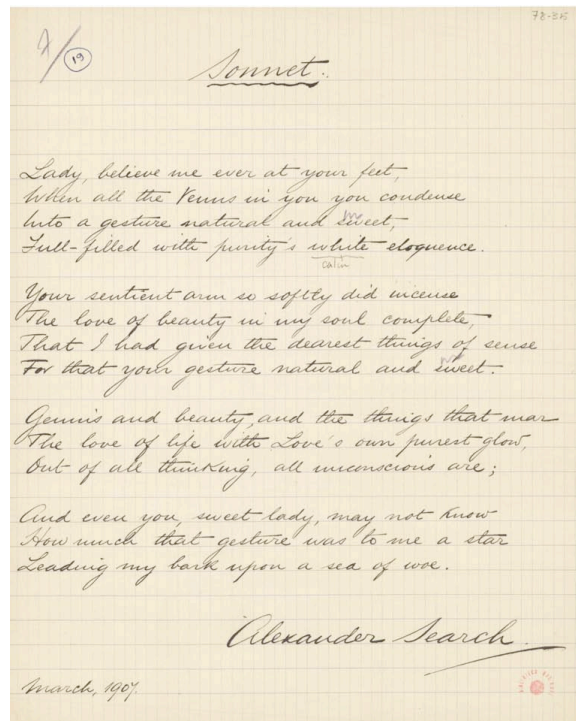 78-36
7/
19
Sonnet.
Lady, believe me ever at your feet,
When all the Venus in you you condense
Into a gesture natural and sweet,
Full-filled with purity's white eloquence.
calm
Your sentient arm so softly did incense
The love of beauty in my soul complete,
That I had given the dearest things of sense
For that your gesture natural and sweet.
Genius and beauty, and the things that mar
The love of life with Love's own purest glow,
Out of all thinking, all unconscious are;
And even you, sweet lady, may not know
How much that gesture was to me a star
Leading my bark upon a sea of woe.
Alexander Search.
March, 1907.